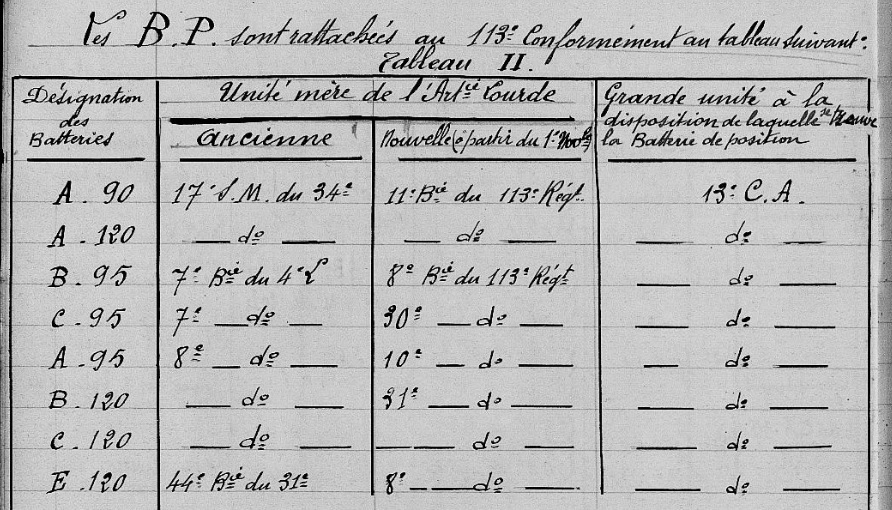 Les B.P. sont rattachées au 113e Conformément au tableau suivant:
Tableau II.
Désignation des Batteries
Unité mère de l'Artie Lourde
Grande unité à la disposition de laquelle se trouve la Batterie de position
ancienne
Nouvelle (à partir du 1er Novbre)
A. 90 17e S.M. du 34e 11e Bie du 113e Régt. 13e C.A.
A. 120 — do — — do — — do —
B. 95 7e Bie du 4e L 8e Bie du 113e Régt — do —
C. 95 7e — do — 30e — do — — do —
A. 95 8e — do — 10e — do — — do —
B. 120 — do — 31e — do — — do —
C. 120 — do — — do — — do —
E. 120 44e Bie du 31e 8e — do — — do —